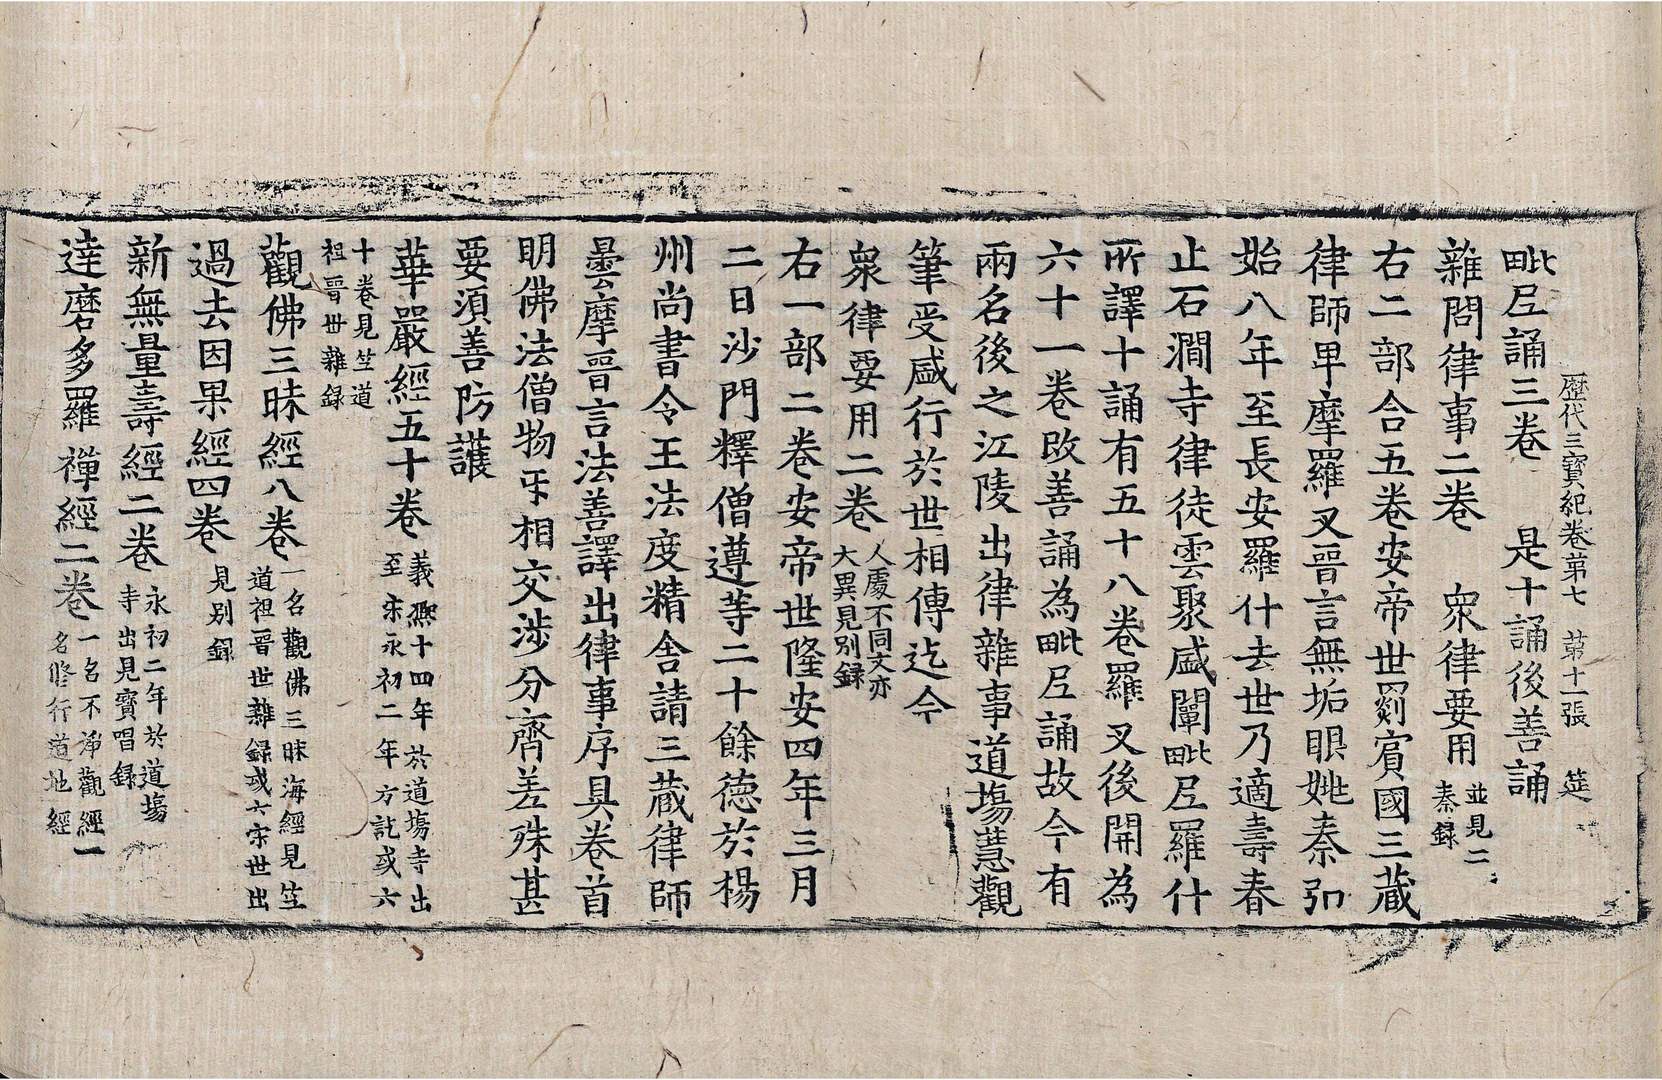 歷代三寶紀卷第七　第十一張　筵
毗尼誦三卷　是十誦後善誦
雜問律事二卷　衆律要用並見二秦録
右二部合五卷安帝世罽賓國三藏
律師卑摩羅叉晉言無垢眼姚秦弘
始八年至長安羅什去世乃適壽春
止石澗寺律徒雲聚盛闡毗尼羅什
所譯十誦有五十八卷羅叉後開為
六十一卷改善誦為毗尼誦故今有
兩名後之江陵出律雜事道場慧觀
筆受盛行於世相傳迄今
衆律要用二卷人處不同文亦大異見別録
右一部二卷安帝世隆安四年三月
二日沙門釋僧遵等二十餘德於楊
州尚書令王法度精舍請三藏律師
曇摩晉言法善譯出律事序具卷首
明佛法僧物牙相交涉分齊差殊甚
要須善防護
華嚴經五十卷義熙十四年於道場寺出至宋永初二年方訖或六
十卷見竺道祖晉世雜録
觀佛三昧經八卷一名觀佛三昧海經見竺道祖晉世雜録或六宋世出
過去因果經四卷見別録
新無量壽經二卷永初二年於道場寺出見寶唱録
達磨多羅禪經二卷一名不淨觀經一名修行道地經